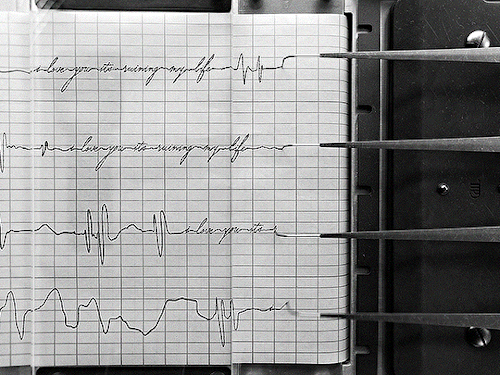 i love you its ruining my life
i love you its ruining my life
i love you its